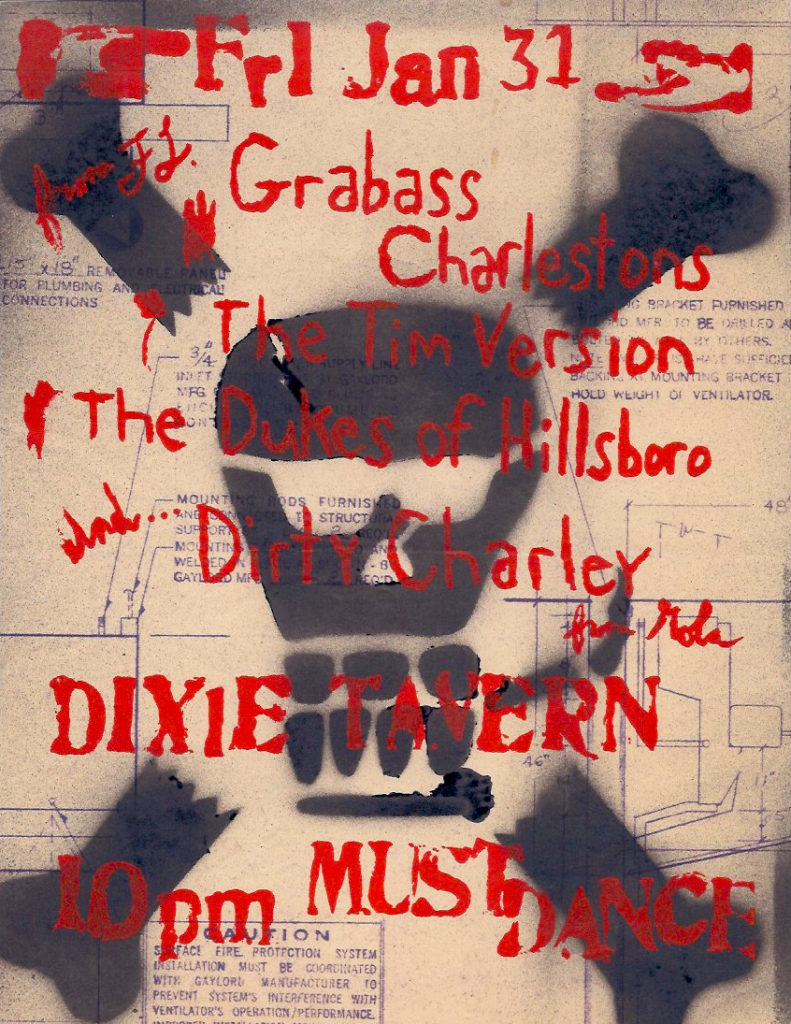 Fri Jan 31
from FL.
Grabass
Charlestons
The Tim Version
The Dukes of Hillsboro
and... Dirty Charley
from Nola
DIXIE TAVERN
10pm MUST DANCE
15" x 18" REMOVABLE PANEL
FOR PLUMBING AND ELECTRICAL
CONNECTIONS
BRACKET FURNISHED
MFR. TO BE DRILLED
BY OTHERS.
HAVE SUFFICIE
BACKING AT MOUNTING BRACKET
HOLD WEIGHT OF VENTILATOR.
3/4"
INLET
MFG
MOUNTING RODS FURNISHED
AND TO STRUCTURA
SUPPORT
MOUNTING AND
WELDED
GAYLORD MF REQ'D
48"
46"
11"
CAUTION
SURFACE FIRE PROTECTION SYSTEM
INSTALLATION MUST BE COORDINATED
WITH GAYLORD MANUFACTURER TO
PREVENT SYSTEM'S INTERFERENCE WITH
VENTILATOR'S OPERATION/PERFORMANCE.